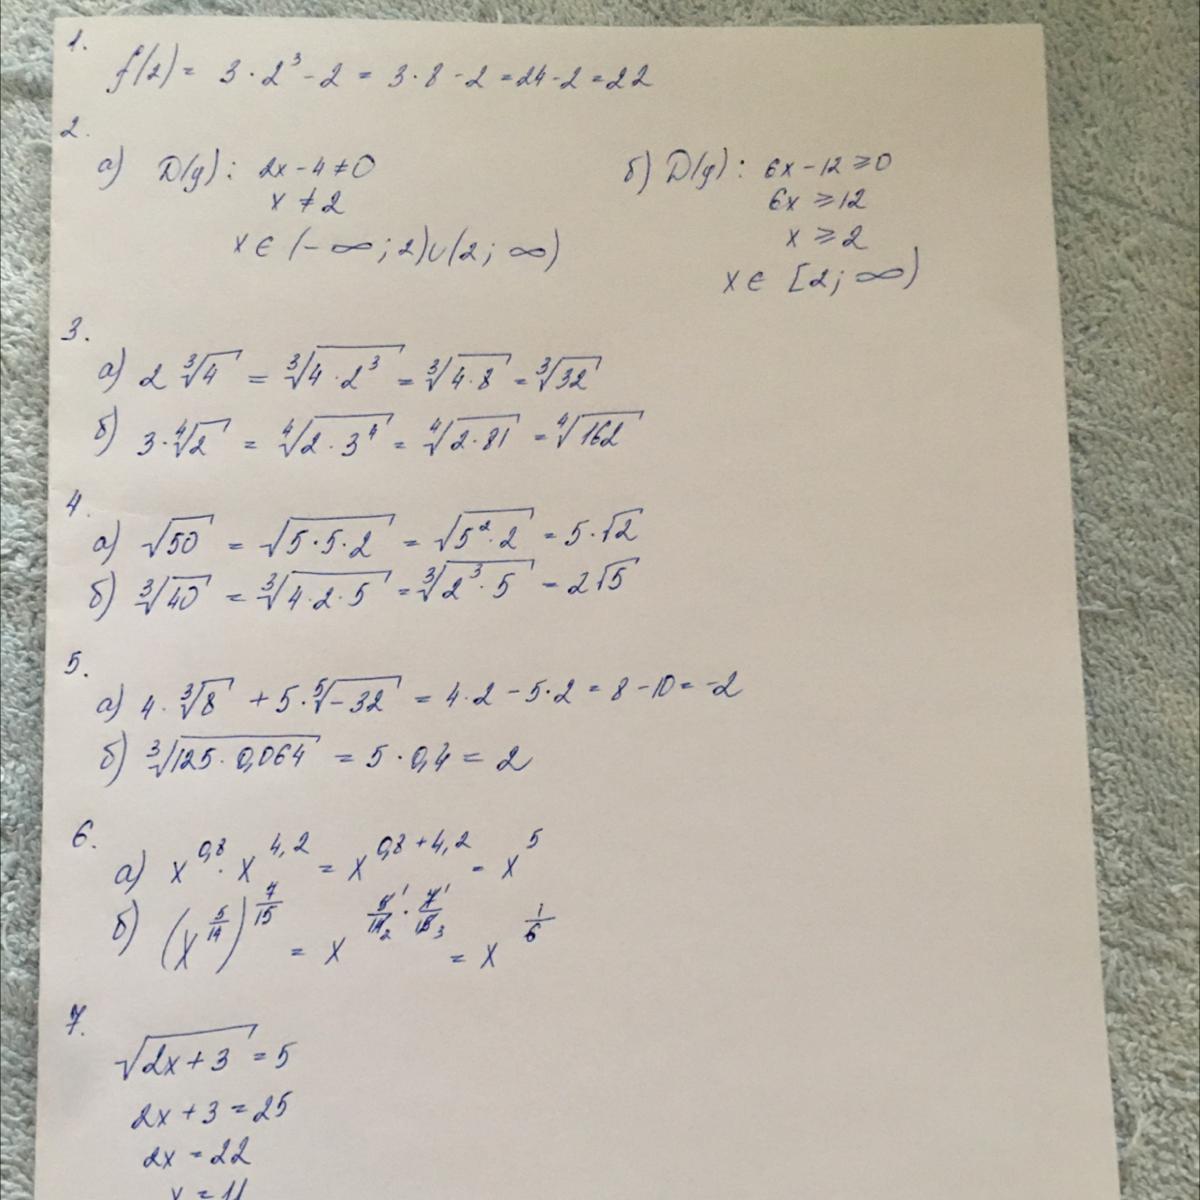 1.
f(2) = 3 · 2³ - 2 = 3 · 8 - 2 = 24 - 2 = 22
2.
а) D(y): 2x - 4 ≠ 0
x ≠ 2
x ∈ (- ∞; 2)∪(2; ∞)
б) D(y): 6x - 12 ≥ 0
6x ≥ 12
x ≥ 2
x ∈ [2; ∞)
3.
а) 2 ∛4 = ∛(4 · 2³) = ∛(4 · 8) = ∛32
б) 3 · ∜2 = ∜(2 · 3⁴) = ∜(2 · 81) = ∜162
4.
а) √50 = √(5 · 5 · 2) = √(5² · 2) = 5 · √2
б) ∛40 = ∛(4 · 2 · 5) = ∛(2³ · 5) = 2√5
5.
а) 4 · ∛8 + 5 · ⁵√(-32) = 4 · 2 - 5 · 2 = 8 - 10 = -2
б) ∛(125 · 0,064) = 5 · 0,4 = 2
6.
а) x^0,8 · x^4,2 = x^(0,8 + 4,2) = x⁵
б) (x^(5/14))^(7/15) = x^(5/14 · 7/15) = x^(1/6)
7.
√(2x + 3) = 5
2x + 3 = 25
2x = 22
x = 11